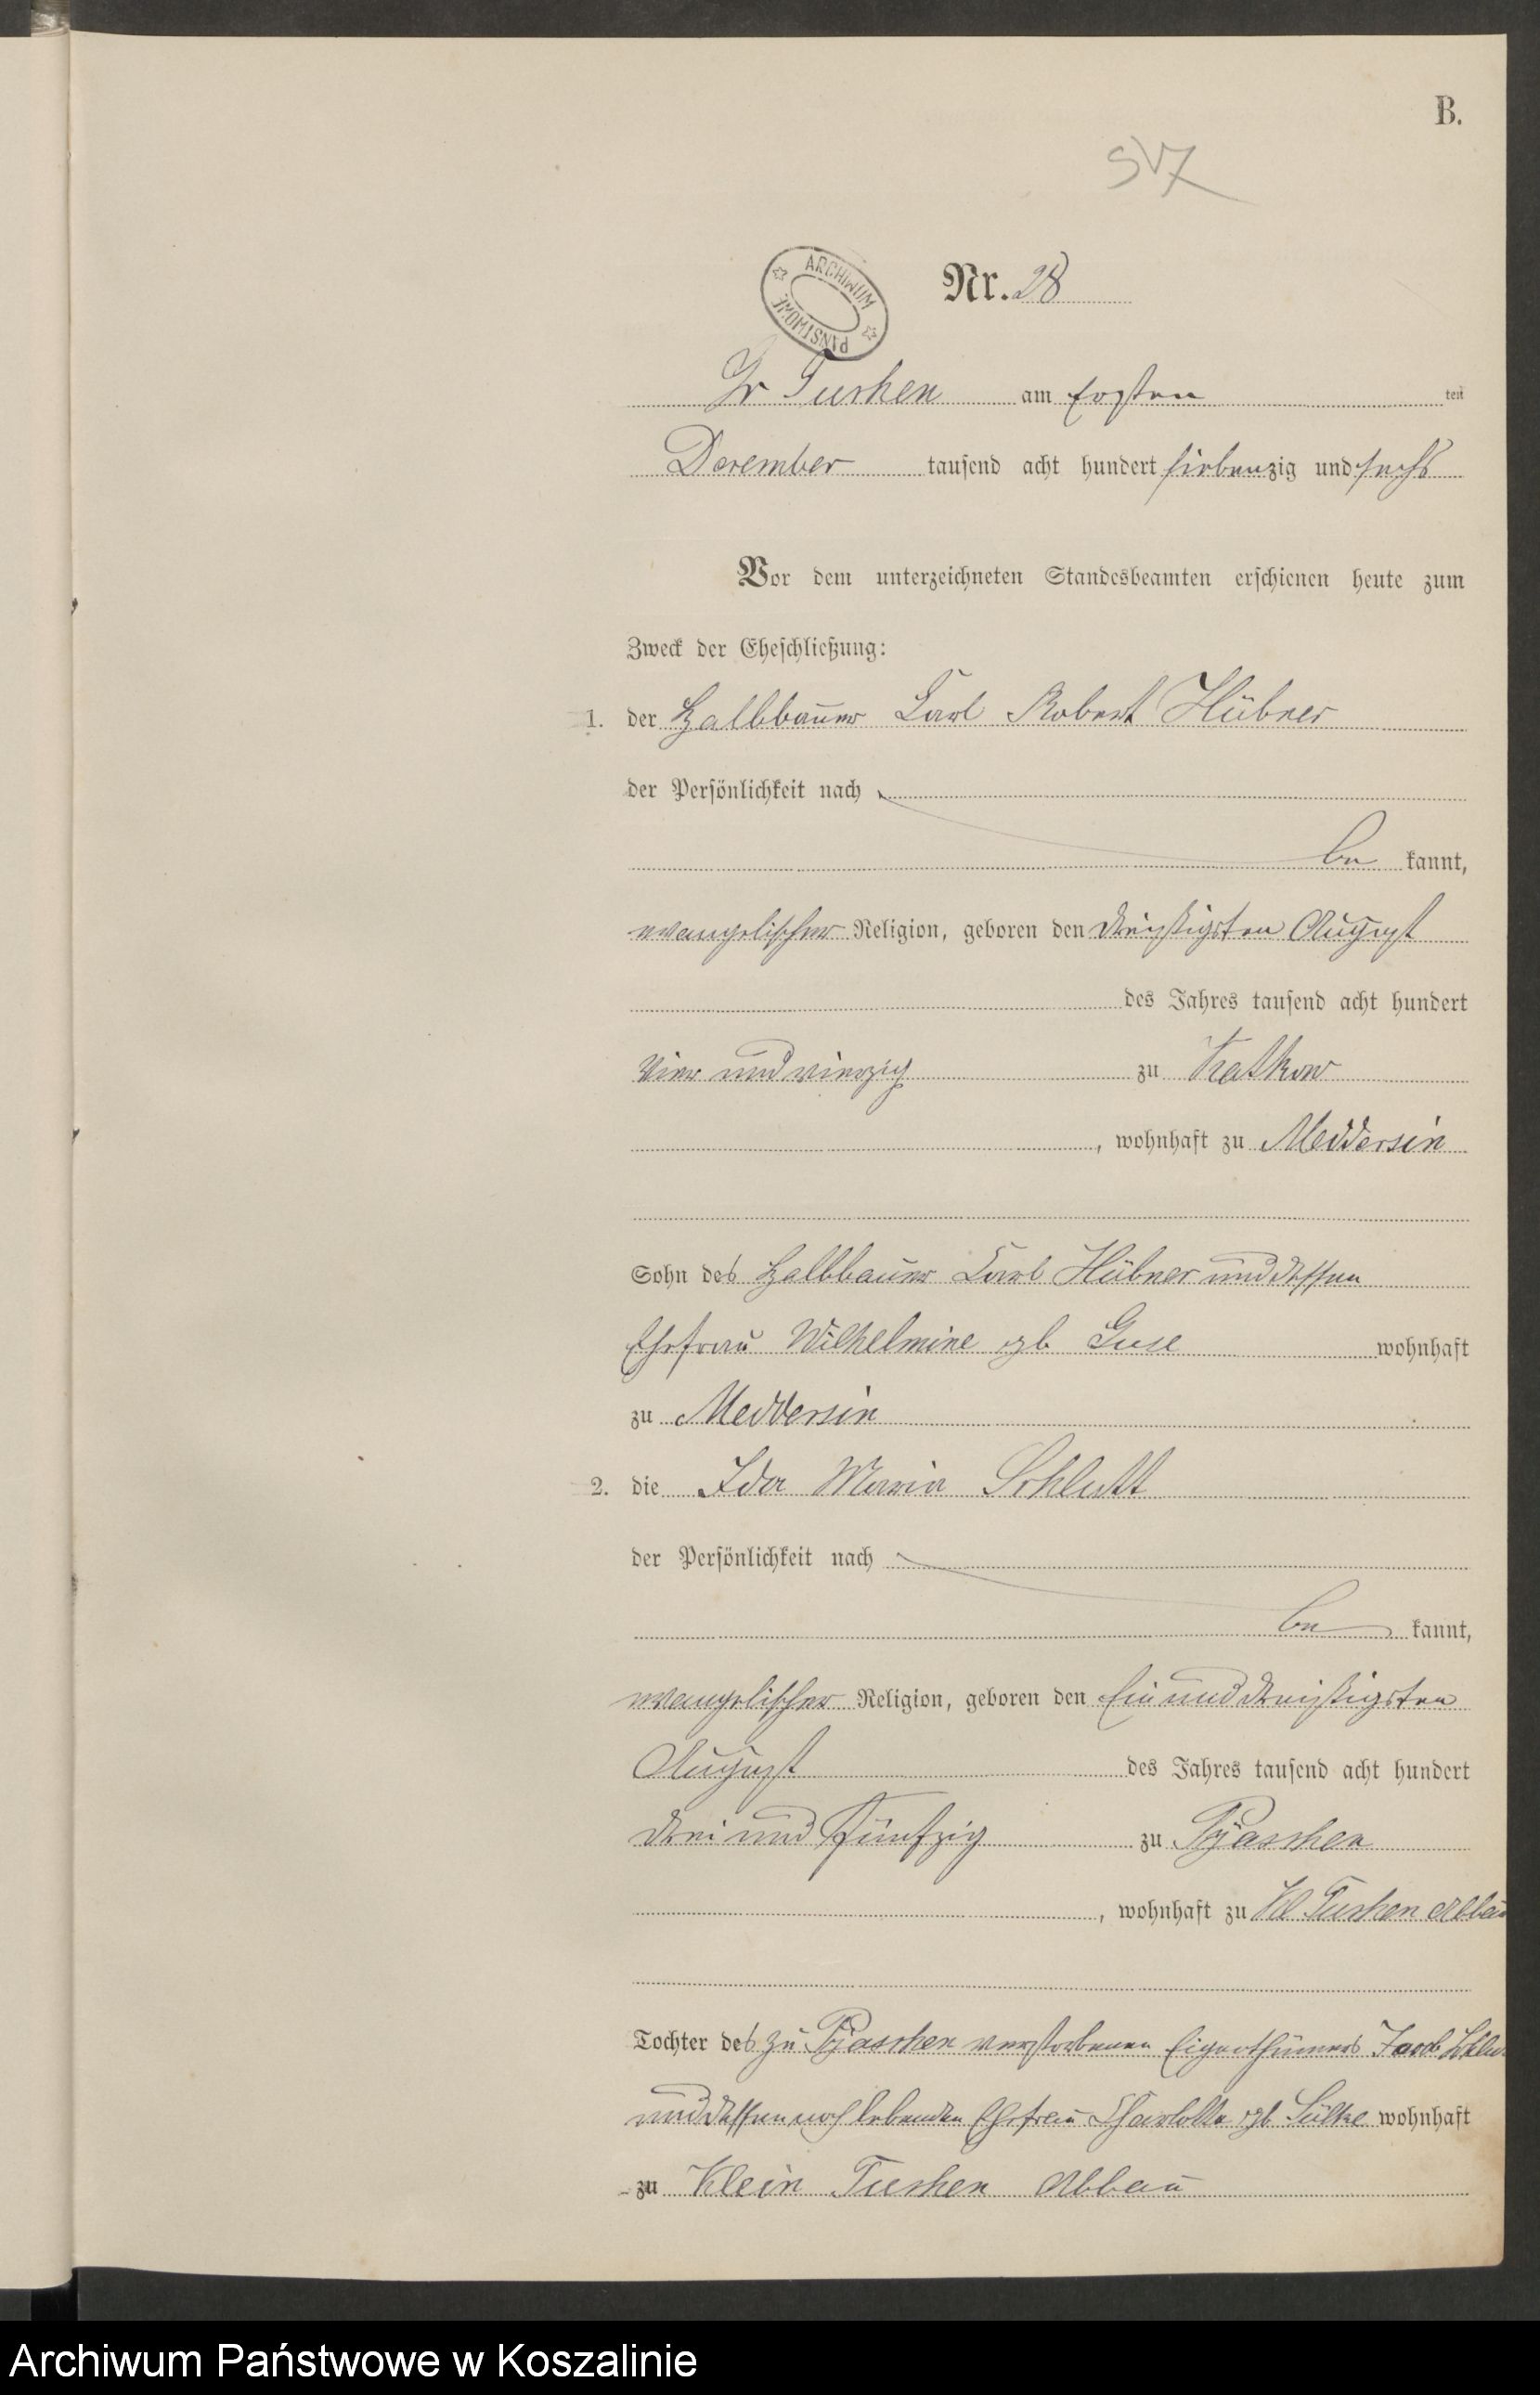 B.
517
ARCHIWUM PAŃSTWOWE
Nr. 28
Gr Tuchen am Ersten ten
December tausend acht hundert siebenzig und sechs
Vor dem unterzeichneten Standesbeamten erschienen heute zum
Zweck der Eheschließung:
1. der Halbbauer Carl Robert Hübner
der Persönlichkeit nach
be kannt,
evangelischer Religion, geboren den dreißigsten August
des Jahres tausend acht hundert
vier und vierzig zu Kathkow
, wohnhaft zu Meddersin
Sohn des Halbbauer Carl Hübner und dessen
Ehefrau Wilhelmine geb Guse wohnhaft
zu Meddersin
2. die Ida Maria Schlutt
der Persönlichkeit nach
be kannt,
evangelischer Religion, geboren den Ein und dreißigsten
August des Jahres tausend acht hundert
drei und fünfzig zu Pyaschen
, wohnhaft zu Kl Tuchen Abbau
Tochter des zu Pyaschen verstorbenen Eigenthümers Jacob
und dessen noch lebenden Ehefrau Charlotte geb Sülke wohnhaft
zu Klein Tuchen Abbau
Archiwum Państwowe w Koszalinie